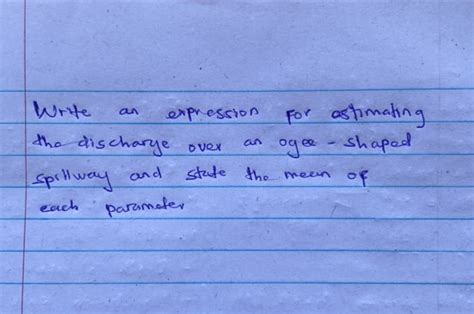 Write an expression for estimating
the discharge over an ogee-shaped
spillway and state the mean of
each parameter